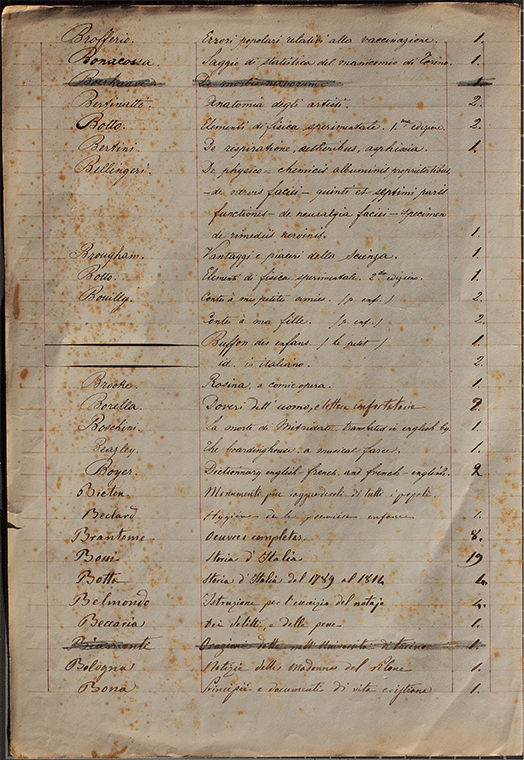 Brofferio. Errori popolari relativi alla vaccinazione. 1.
Bonacossa. Saggio di statistica del manicomio di Torino. 1.
De morbis nervorum 1
Bertinatti Anatomia degli artisti. 2.
Botto. Elementi di fisica sperimentale. 1.ma edizione. 2.
Bertini. De respiratione, aetheribus, asphixia. 1.
Bellingeri. De physico-chemicis albuminis proprietatibus
– de nervis faciei – quinti et septimi paris
functiones – de neuralgia faciei – specimen
de rimediis nervinis. 1.
Brougham. Vantaggi e piaceri della Scienza. 1.
Botto. Elementi di fisica sperimentale. 2.da edizione. 1.
Bouilly. Contes à mes petites amies. (p. enf.) 2.
Contes à ma fille. (p. enf.) 2.
Buffon des enfans. (le petit) 1.
id. in italiano. 2.
Brooke. Rosina, a comic opera. 1.
Borella. Doveri dell'uomo, e lettere confortatorie 2.
Boschini. La morte di Mitridate translated in english by. 1.
Beazley. The boardinghouse, a musical farce. 1.
Boyer. Dictionnary english-french and french-english. 2
Monumenti più ragguardevoli di tutti i popoli.
Beclard Hygiène de la première enfance 1.
Brantome Oeuvres completes 8.
Bossi Storia d'Italia 19
Botta Storia d'Italia dal 1789 al 1814 4.
Belmondo Istruzione per l'esercizio del notajo 4.
Beccaria Dei delitti e delle pene 1.
Biamonti Orazioni dette nell'Università di Torino 1.
Bologna Notizie della Madonna del Pilone 1.
Bona Principii e documenti di vita cristiana 1.